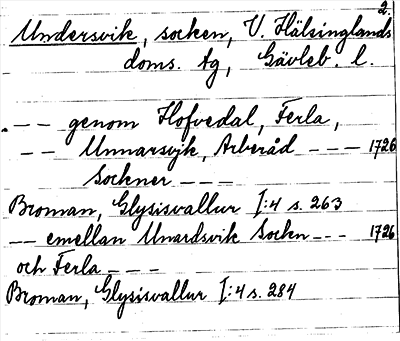 2.
Undersvik, socken, V. Hälsinglands
doms. tg, Gävleb. l.
--- genom Hofvedal, Ferla,
-- Unnarsvjk, Arberåd --- 1726
Sockner ---
Broman, Glysisvallur I:4 s. 263
-- emellan Unardsvik Socken --- 1726
och Ferla ---
Broman, Glysisvallur I:4 s. 284